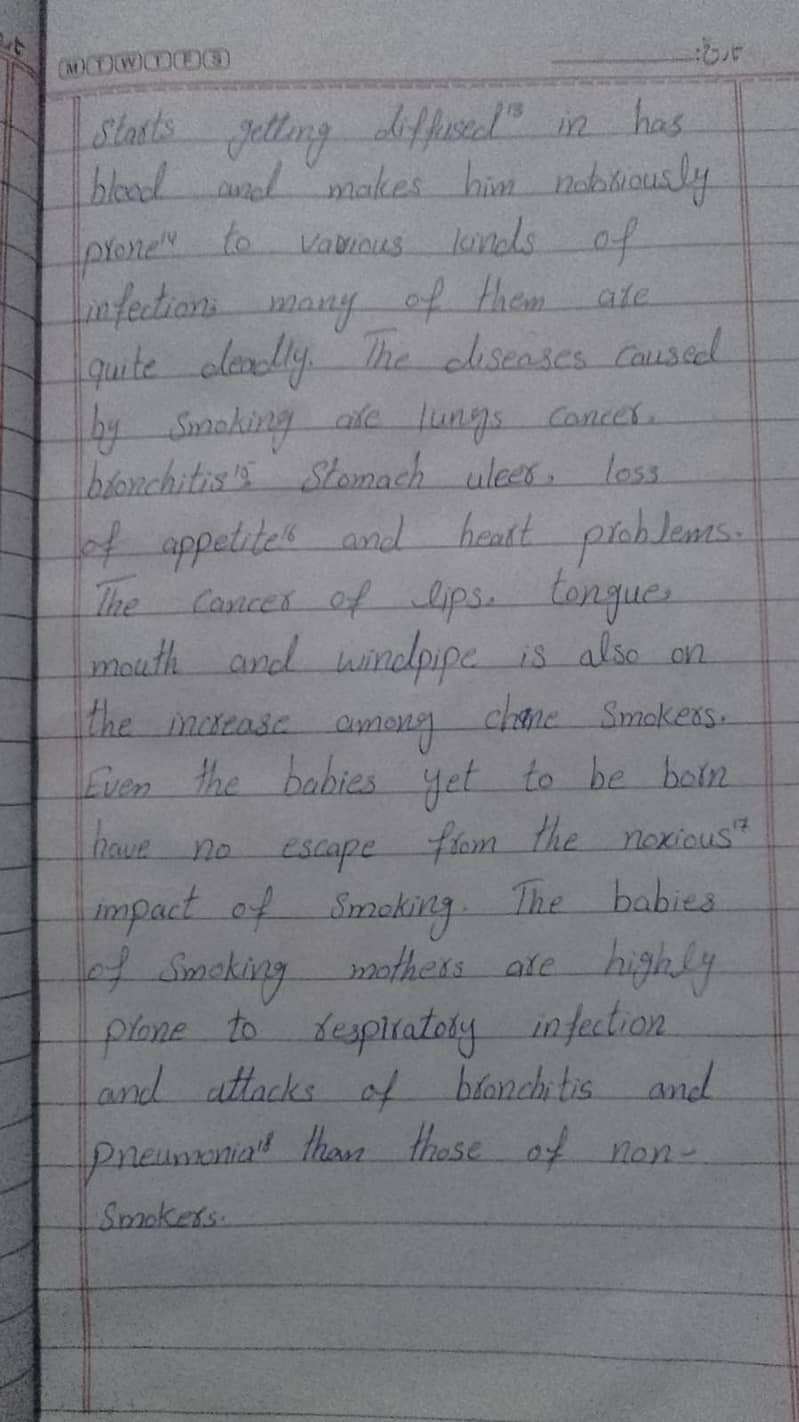 M T W T F S
تاریخ:
Starts getting diffused¹³ in has
blood and makes him notoriously
prone¹⁴ to various kinds of
infections many of them are
quite deadly. The diseases caused
by Smoking are lungs cancer.
bronchitis¹⁵ Stomach ulcer, loss
of appetite¹⁶ and heart problems.
The Cancer of lips. tongue,
mouth and windpipe is also on
the increase among chine Smokers.
Even the babies yet to be born
have no escape from the noxious¹⁷
impact of Smoking. The babies
of Smoking mothers are highly
prone to respiratory infection
and attacks of bronchitis and
Pneumonia¹⁸ than those of non-
Smokers.